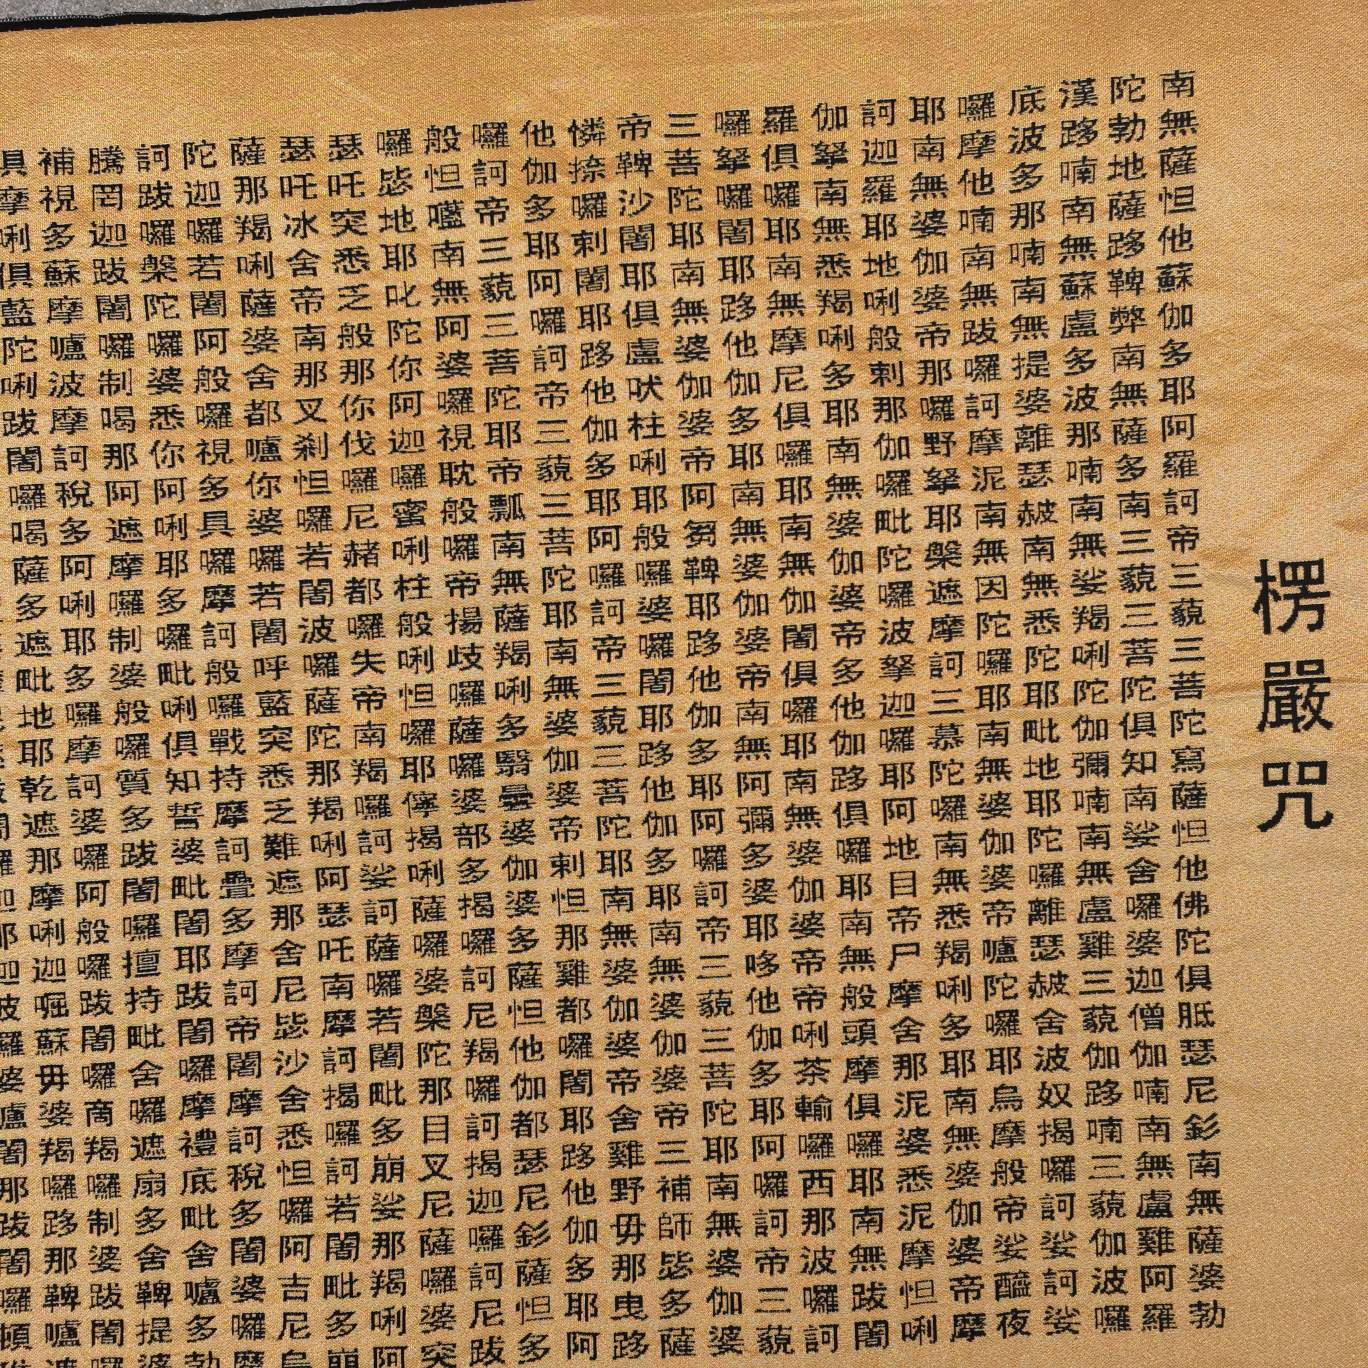 楞嚴咒
南無薩怛他蘇伽多耶阿羅訶帝三藐三菩陀寫薩怛他佛陀俱胝瑟尼釤南無薩婆勃
陀勃地薩跢鞞弊南無薩多南三藐三菩陀俱知南娑舍囉婆迦僧伽喃南無盧雞阿羅
漢跢喃南無蘇盧多波那喃南無娑羯唎陀伽彌喃南無盧雞三藐伽路喃三藐伽波囉
底波多那喃南無提婆離瑟赧南無悉陀耶毗地耶陀囉離瑟赧舍波奴揭囉訶娑訶娑
囉摩他喃南無跋囉訶摩泥南無因陀囉耶南無婆伽婆帝嚧陀囉耶烏摩般帝娑醯夜
耶南無婆伽婆帝那囉野拏耶槃遮摩訶三慕陀囉南無悉羯唎多耶南無婆伽婆帝摩
訶迦羅耶地唎般剌那伽囉毗陀囉波拏迦囉耶阿地目帝尸摩舍那泥婆悉泥摩怛唎
伽拏南無悉羯唎多耶南無婆伽婆帝多他伽路俱囉耶南無般頭摩俱囉耶南無跋闍
羅俱囉耶南無摩尼俱囉耶南無伽闍俱囉耶南無婆伽婆帝帝唎茶輸囉西那波囉訶
囉拏囉闍耶路他伽多耶南無婆伽婆帝南無阿彌多婆耶哆他伽多耶阿囉訶帝三藐
三菩陀耶南無婆伽婆帝阿芻鞞耶路他伽多耶阿囉訶帝三藐三菩陀耶南無婆伽婆
帝鞞沙闍耶俱盧吠柱唎耶般囉婆囉闍耶路他伽多耶南無婆伽婆帝三補師毖多薩
憐捺囉剌闍耶路他伽多耶阿囉訶帝三藐三菩陀耶南無婆伽婆帝舍雞野毋那曳路
他伽多耶阿囉訶帝三藐三菩陀耶南無婆伽婆帝剌怛那雞都囉闍耶路他伽多耶阿
囉訶帝三藐三菩陀耶帝瓢南無薩羯唎多翳曇婆伽婆多薩怛他伽都瑟尼釤薩怛多
般怛囕南無阿婆囉視耽般囉帝揚歧囉薩囉婆部多揭囉訶尼羯囉訶揭迦囉訶尼跋
囉毖地耶叱陀你阿迦囉蜜唎柱般唎怛囉耶儜揭唎薩囉婆槃陀那目叉尼薩囉婆突
瑟吒突悉乏般那你伐囉尼赭都囉失帝南羯囉訶娑訶薩囉若闍毗多崩娑那羯唎阿
瑟吒冰舍帝南那叉剎怛囉若闍波囉薩陀那羯唎阿瑟吒南摩訶揭囉訶若闍毗多崩
薩那羯唎薩婆舍都嚧你婆囉若闍呼藍突悉乏難遮那舍尼毖沙舍悉怛囉阿吉尼烏
陀迦囉若闍阿般囉視多具囉摩訶般囉戰持摩訶疊多摩訶帝闍摩訶稅多闍婆囉摩
訶跋囉槃陀囉婆悉你阿唎耶多囉毗唎俱知誓婆毗闍耶跋闍囉摩禮底毗舍嚧多勃
騰罔迦跋闍囉制喝那阿遮摩囉制婆般囉質多跋闍囉擅持毗舍囉遮扇多舍鞞提婆
補視多蘇摩嚧波摩訶稅多阿唎耶多囉摩訶婆囉阿般囉跋闍囉商羯囉制婆跋闍囉
俱摩唎俱藍陀唎跋闍囉喝薩多遮毗地耶乾遮那摩唎迦啒蘇毋婆羯囉路那鞞嚧遮